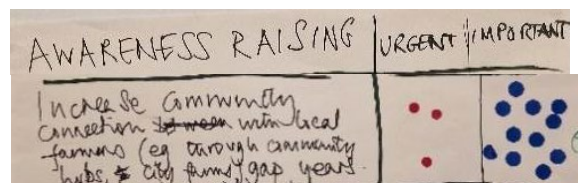 AWARENESS RAISING URGENT IMPORTANT
Increase Community
connection between with local
farmers (eg through community
hubs, city farms) gap years.